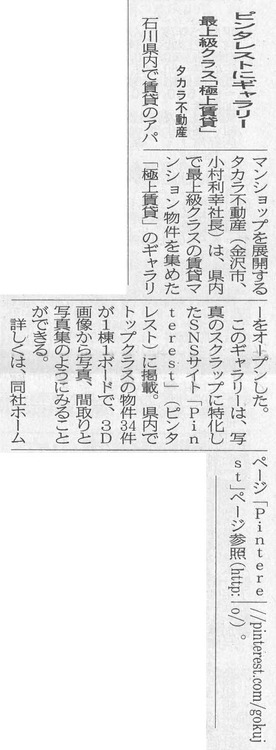 ピンタレストにギャラリー
最上級クラス「極上賃貸」
タカラ不動産
石川県内で賃貸のアパ
マンショップを展開する
タカラ不動産（金沢市、
小村利幸社長）は、県内
で最上級クラスの賃貸マ
ンション物件を集めた
「極上賃貸」のギャラリ
ーをオープンした。
このギャラリーは、写
真のスクラップに特化し
たSNSサイト「Pin
terest」（ピンタ
レスト）に掲載。県内で
トップクラスの物件34件
が1棟1ボードで、3D
画像から写真、間取りと
写真集のようにみること
ができる。
詳しくは、同社ホーム
ページ「Pintere
st」ページ参照(http:
//pinterest.com/gokuj
o/)。